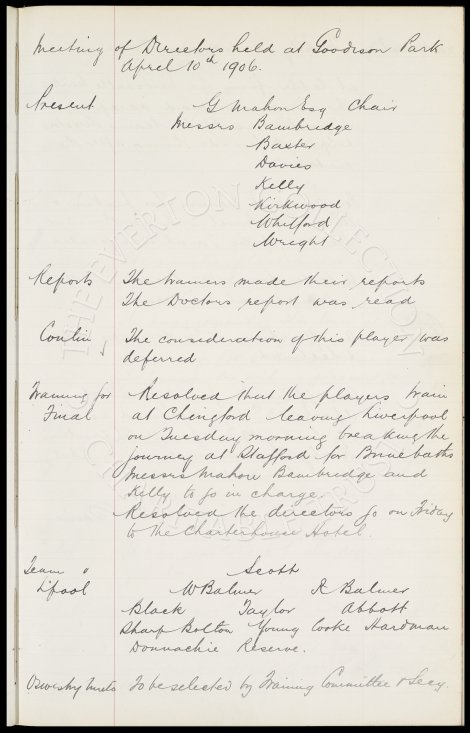 Meeting of Directors held at Goodison Park
April 10th 1906.
Present G Mahon Esq Chair
Messrs Bainbridge
Baxter
Davies
Kelly
Kirkwood
Whitford
Wright
Reports The trainers made their reports
The Doctors report was read
The consideration of this player was
deferred
Training for Resolved that the players train
Final at Chingford leaving Liverpool
on Tuesday morning breaking the
journey at Stafford for Brine baths
Messrs Mahon Bainbridge and
Kelly to go in charge.
Resolved the directors go on Friday
to the Charterhouse Hotel.
Team v Scott
L'pool W Balmer R Balmer
Black Taylor Abbott
Sharp Bolton Young Cooke Hardman
Donnachie Reserve.
To be selected by Training Committee & Secy.
THE EVERTON COLLECTION